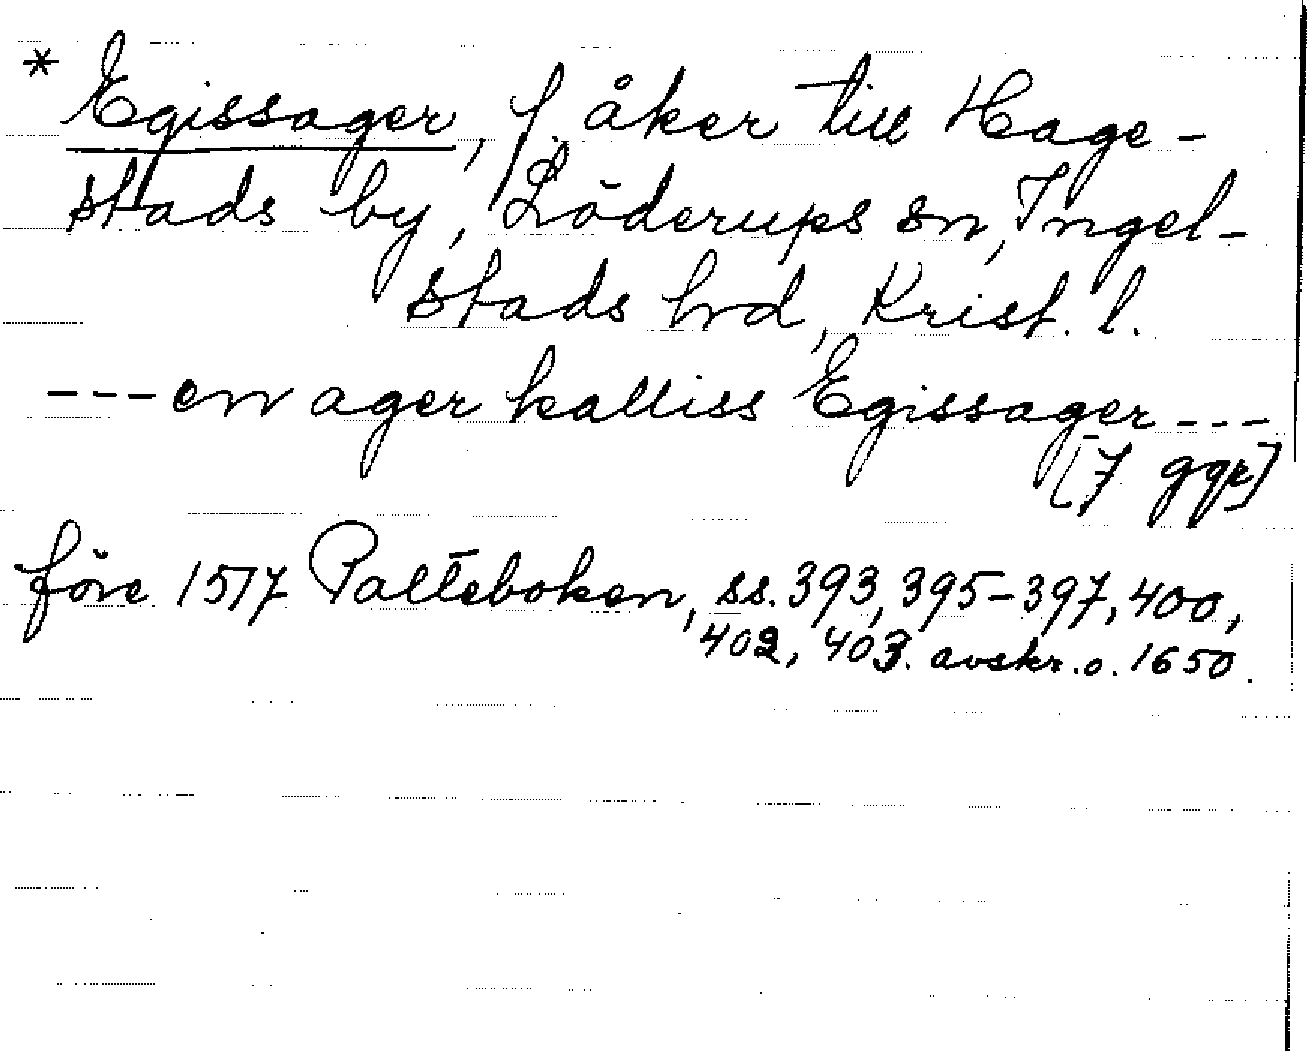 * Egissager, f. åker till Hage-
stads by, Löderups sn, Ingel-
stads hd, Krist. l.
---en ager kalliss Egissager---
[7 ggr]
före 1517 Palteboken, ss. 393, 395-397, 400,
402, 403. avskr. o. 1650.